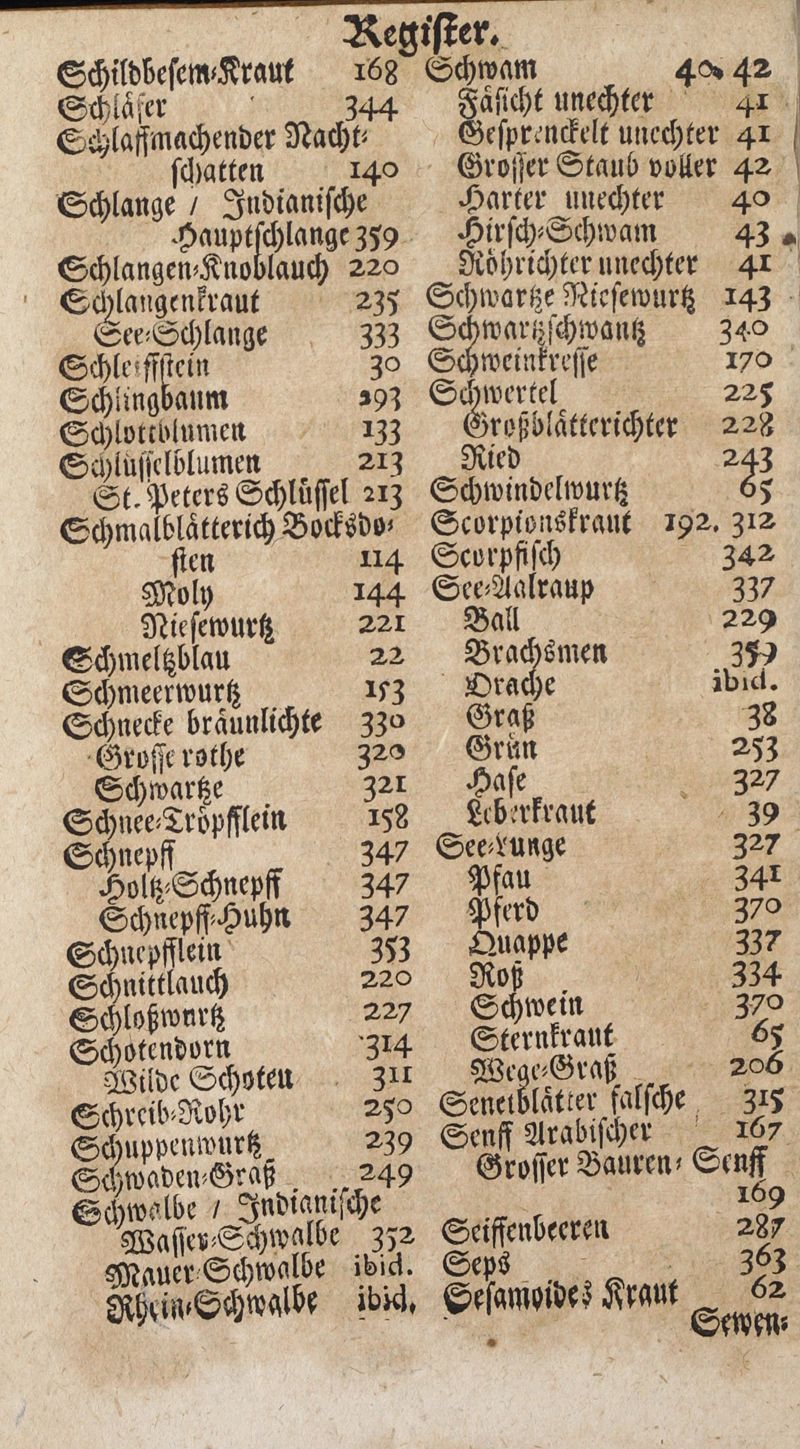 Register.
Schildbesem⸗Kraut 168
Schläfer 344
Schlaffmachender Nacht⸗
schatten 140
Schlange / Indianische
Hauptschlange 359
Schlangen⸗Knoblauch 220
Schlangenkraut 235
See⸗Schlange 333
Schleiffstein 30
Schlingbaum 293
Schlottblumen 133
Schlüsselblumen 213
St. Peters Schlüssel 213
Schmalblätterich Bocksdo⸗
sten 114
Moly 144
Niesewurtz 221
Schmeltzblau 22
Schmeerwurtz 153
Schnecke bräunlichte 330
Grosse rothe 320
Schwartze 321
Schnee⸗Tröpfflein 158
Schnepff 347
Holtz⸗Schnepff 347
Schnepff⸗Huhn 347
Schnepfflein 353
Schnittlauch 220
Schloßwurtz 227
Schotendorn 314
Wilde Schoten 311
Schreib⸗Rohr 250
Schuppenwurtz 239
Schwaden⸗Graß 249
Schwalbe / Indianische
Wasser⸗Schwalbe 352
Mauer⸗Schwalbe ibid.
Rhein⸗Schwalbe ibid.
Schwam 40. 42
Fäsicht unechter 41
Gesprenckelt unechter 41
Grosser Staub voller 42
Harter unechter 40
Hirsch⸗Schwam 43
Röhrichter unechter 41
Schwartze Niesewurtz 143
Schwartzschwantz 340
Schweinkresse 170
Schwertel 225
Großblätterichter 228
Ried 243
Schwindelwurtz 65
Scorpionskraut 192. 312
Scorpfisch 342
See⸗Aalraup 337
Ball 229
Brachsmen 359
Drache ibid.
Graß 38
Grün 253
Hase 327
Leberkraut 39
See⸗Lunge 327
Pfau 341
Pferd 370
Quappe 337
Roß 334
Schwein 370
Sternkraut 65
Wege⸗Graß 206
Senetblätter falsche 315
Senff Arabischer 167
Grosser Bauren⸗Senff
169
Seiffenbeeren 287
Seps 363
Sesamoides Kraut 62
Sewen⸗